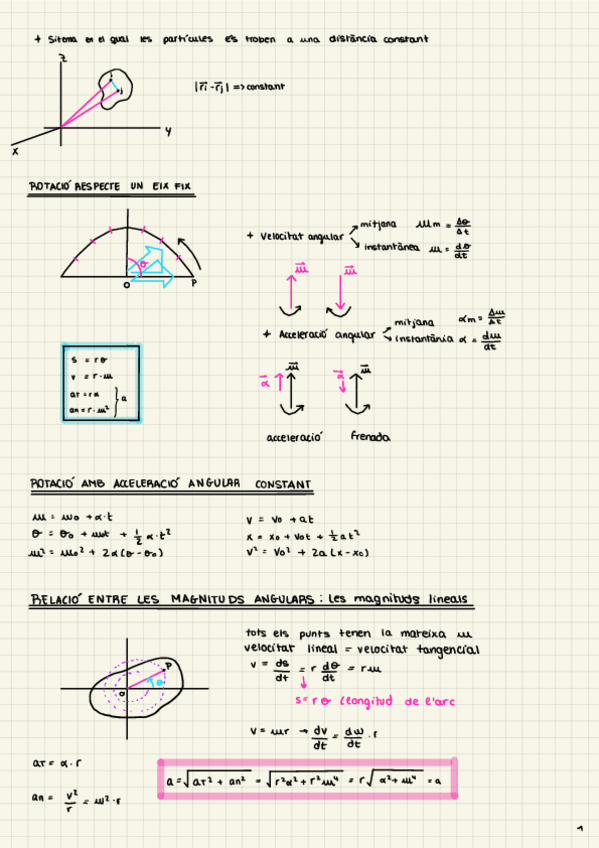 + Sistema en el qual les partícules es troben a una distància constant
z
i
j
|r⃗i - r⃗j| => constant
y
x
ROTACIÓ RESPECTE UN EIX FIX
+ Velocitat angular
mitjana ωm = Δθ/Δt
instantànea ω = dθ/dt
θ
O
P
ω⃗ ω⃗
+ Acceleració angular
mitjana αm = Δω/Δt
instantània α = dω/dt
s = rθ
v = r·ω
aT = rα
an = r·ω²
} a
α⃗ ω⃗ α⃗ ω⃗
acceleració frenada
ROTACIÓ AMB ACCELERACIÓ ANGULAR CONSTANT
ω = ω0 + α·t
θ = θ0 + ωt + 1/2 α·t²
ω² = ω0² + 2α(θ - θ0)
v = v0 + at
x = x0 + v0t + 1/2 at²
v² = v0² + 2a(x - x0)
RELACIÓ ENTRE LES MAGNITUDS ANGULARS i les magnituds lineals
tots els punts tenen la mateixa ω
velocitat lineal = velocitat tangencial
v = ds/dt = r dθ/dt = rω
s = rθ (longitud de l'arc
P
θ
O
v = ωr → dv/dt = dω/dt · r
aT = α·r
a = √(aT² + an²) = √(r²α² + r²ω⁴) = r√(α² + ω⁴) = a
an = v²/r = ω²·r
1